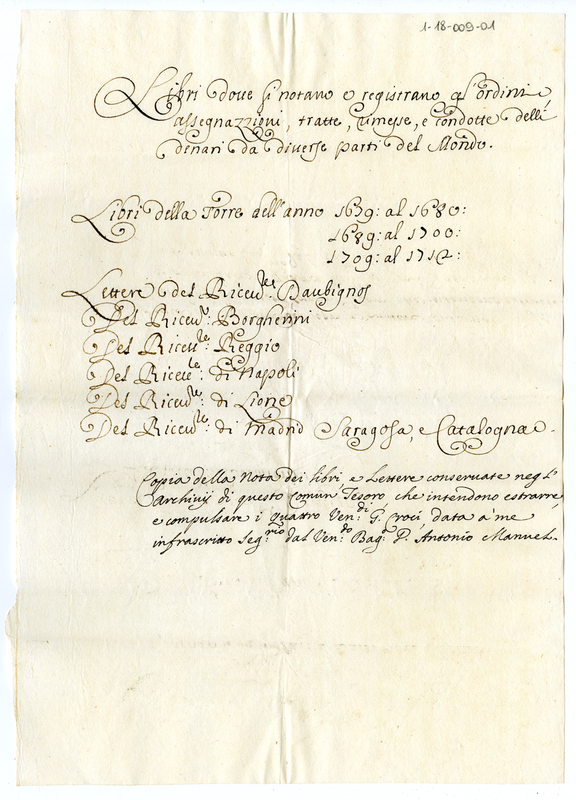 1-18-009-01
Libri dove si notano e registrano gl'ordini,
assegnazzioni, tratte, rimesse, e condotte delli
denari da diverse parti del Mondo.
Libri della Torre dell'anno 1679: al 1680:
1689: al 1700:
1709: al 1712:
Lettere del Ricevre: Daubignos
Del Ricevre: Borgherini
Del Ricevre: Reggio
Del Ricevre: di Napoli
Del Ricevre: di Lione
Del Ricevre: di Madrid Saragosa, e Catalogna.
Copia della Nota dei libri e Lettere conservate negl'
Archivij di questo comun Tesoro che intendono estrarre,
e compulsare i quattro Vendi: G. Croci, data a' me
infrascritto Segrio: dal Vendo: Bago: P. Antonio Manuel.